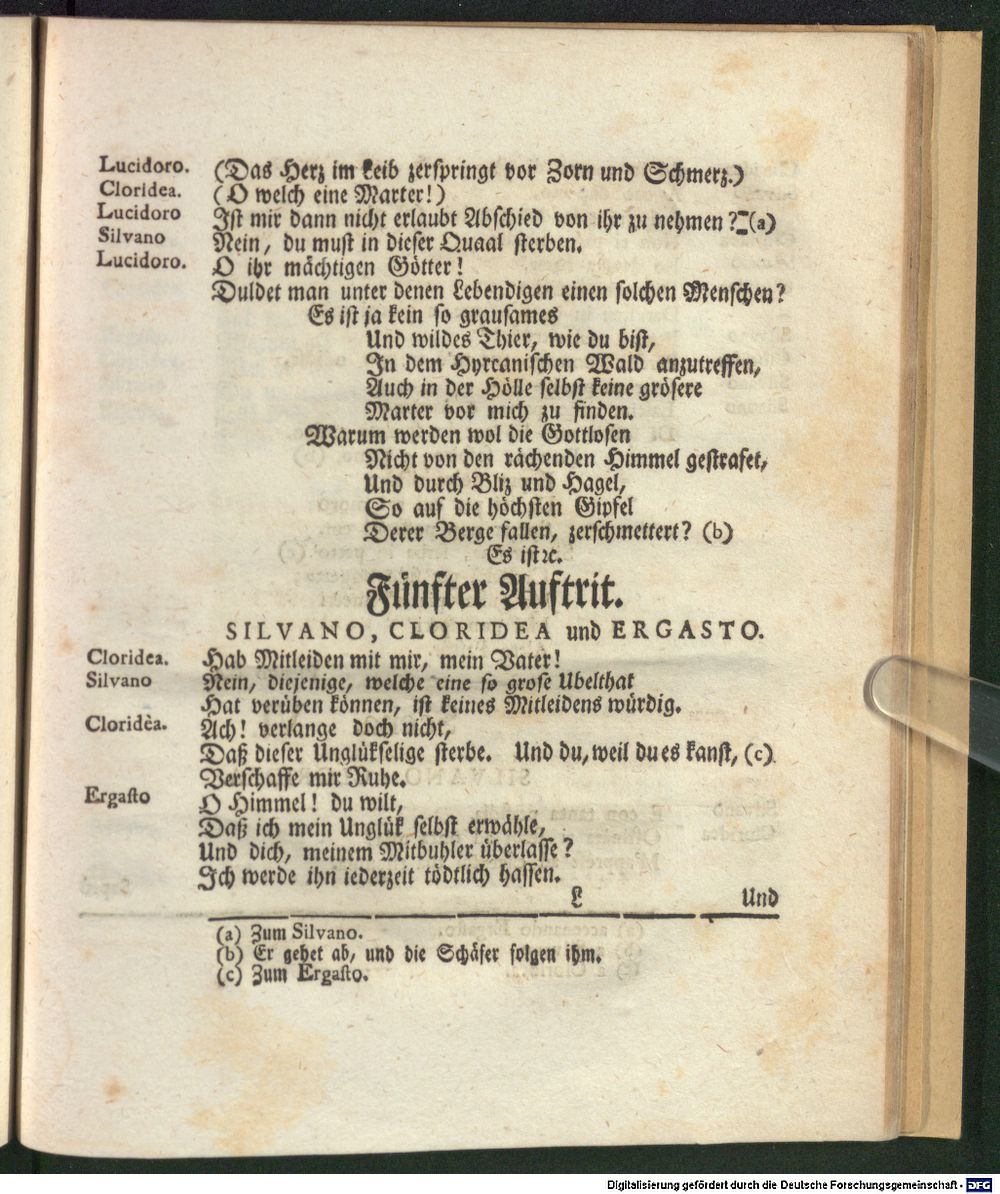 Lucidoro. (Das Herz im Leib zerspringt vor Zorn und Schmerz.)
Cloridea. (O welch eine Marter!)
Lucidoro Ist mir dann nicht erlaubt Abschied von ihr zu nehmen? (a)
Silvano Nein, du must in dieser Quaal sterben.
Lucidoro. O ihr mächtigen Götter!
Duldet man unter denen Lebendigen einen solchen Menschen?
Es ist ja kein so grausames
Und wildes Thier, wie du bist,
In dem Hyrcanischen Wald anzutreffen,
Auch in der Hölle selbst keine grösere
Marter vor mich zu finden.
Warum werden wol die Gottlosen
Nicht von den rächenden Himmel gestrafet,
Und durch Bliz und Hagel,
So auf die höchsten Gipfel
Derer Berge fallen, zerschmettert? (b)
Es ist ꝛc.
Fünfter Auftrit.
SILVANO, CLORIDEA und ERGASTO.
Cloridea. Hab Mitleiden mit mir, mein Vater!
Silvano Nein, diejenige, welche eine so grose Ubelthat
Hat verüben können, ist keines Mitleidens würdig.
Cloridèa. Ach! verlange doch nicht,
Daß dieser Unglükselige sterbe. Und du, weil du es kanst, (c)
Verschaffe mir Ruhe.
Ergasto O Himmel! du wilt,
Daß ich mein Unglük selbst erwähle,
Und dich, meinem Mitbuhler überlasse?
Ich werde ihn iederzeit tödtlich hassen.
L Und
(a) Zum Silvano.
(b) Er gehet ab, und die Schäfer folgen ihm.
(c) Zum Ergasto.
Digitalisierung gefördert durch die Deutsche Forschungsgemeinschaft - DFG